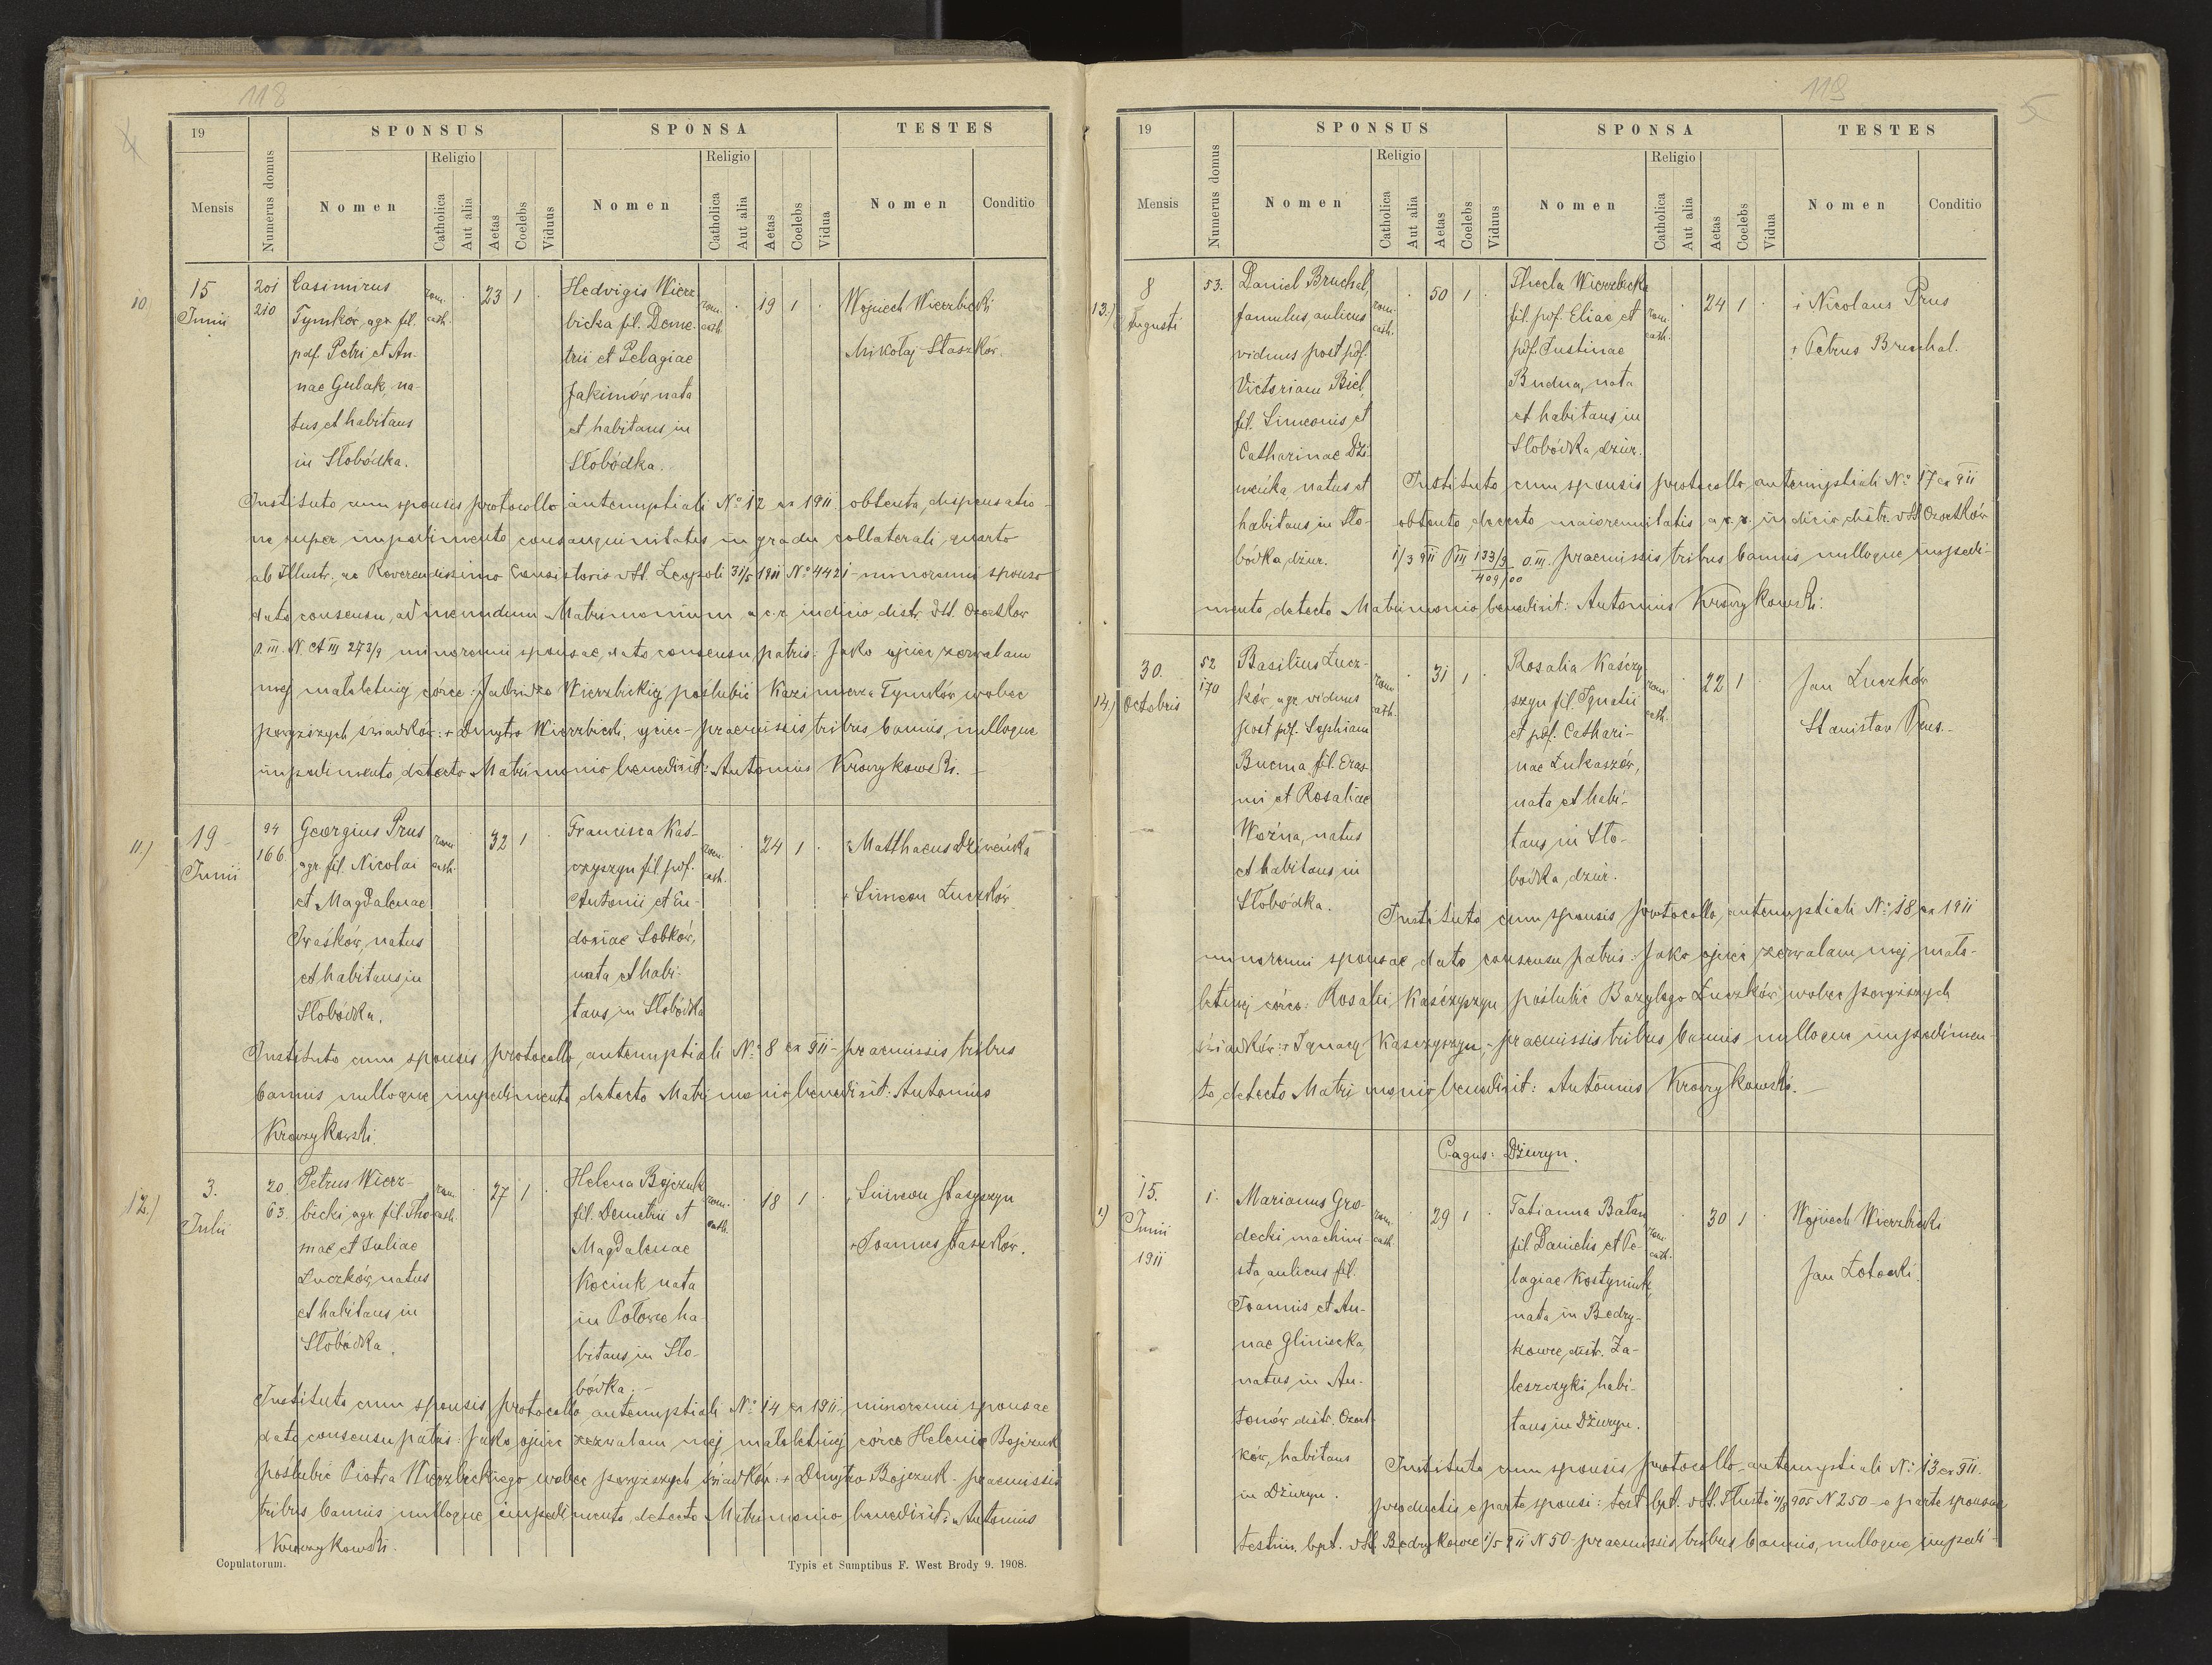 118
4
19
SPONSUS
SPONSA
TESTES
Mensis
Numerus domus
Nomen
Religio
Catholica
Aut alia
Aetas
Coelebs
Viduus
Nomen
Religio
Catholica
Aut alia
Aetas
Coelebs
Vidua
Nomen
Conditio
10
15
Junii
201
210
Casimirus
Tymków, agr. fil.
pdf. Petri et An-
nae Gulak, na-
tus et habitans
in Słobódka.
rom.
cath.
23 1
Hedvigis Wierz-
bicka fil. Deme-
trii et Pelagiae
Jakimów nata
et habitans in
Słobódka.
rom.
cath.
19 1
Wojciech Wierzbicki
Mikołaj Staszków.
Instituto cum sponsis protocollo antenuptiali No 12 ex 1911 obtenta, dispensatio-
ne super impedimento consanguinitatis in gradu collaterali quarto
ab Illustr. ac Reverendissimo Consistorio dtt. Leopoli 31/5 1911 No 4421 - minorenni sponso
dato consensu, ad ineundum Matrimonium a c. r. iudicio distr. dtt. Czortków
O. III. N. CT III 273/9 minorenni sponsae, dato consensu patris: Jako ojciec zezwalam
mej małoletniej córce: Jadwidze Wierzbickiej poślubić Kazimierza Tymków wobec
powyższych świadków: + Dmytro Wierzbicki, ojciec - praemissis tribus bannis, nulloque
impedimento detecto Matrimonio benedixit: Antonius Krowzykowski. -
11.)
19
Junii
94
166.
Georgius Prus
agr. fil. Nicolai
et Magdalenae
Iwaśków, natus
et habitans in
Słobódka.
rom.
cath.
32 1
Francisca Kaś-
czyszyn fil. pdf.
Antonii et Eu-
doxiae Sobków,
nata et habi-
tans in Słobódka
rom.
cath.
24 1
+ Matthaeus Dziweńka
+ Simeon Łuczków.
Instituto cum sponsis protocollo, antenuptiali No 8 ex 911 - praemissis tribus
bannis nulloque impedimento detecto Matrimonio benedixit: Antonius
Krowzykowski.
12.)
3.
Julii
20.
63.
Petrus Wierz-
bicki, agr. fil. Tho-
mae et Juliae
Łuczków, natus
et habitans in
Słobódka.
rom.
cath.
27 1
Helena Bojczuk
fil. Demetrii et
Magdalenae
Kociuk, nata
in Połowce ha-
bitans in Sło-
bódka. -
rom.
cath.
18 1
+ Simeon Stasyszyn
+ Joannes Staszków.
Instituto cum sponsis protocollo, antenuptiali No 14 ex 1911 - minorenni sponsae
dato consensu patris: Jako ojciec zezwalam mej małoletniej córce Helenie Bojczuk
poślubić Piotra Wierzbickiego wobec powyższych świadków: + Dmytro Bojczuk - praemissis
tribus bannis nulloque impedimento detecto Matrimonio benedixit: Antonius
Krowzykowski.
Copulatorum.
Typis et Sumptibus F. West Brody 9. 1908.
119
5
19
SPONSUS
SPONSA
TESTES
Mensis
Numerus domus
Nomen
Religio
Catholica
Aut alia
Aetas
Coelebs
Viduus
Nomen
Religio
Catholica
Aut alia
Aetas
Coelebs
Vidua
Nomen
Conditio
13.)
8
Augusti
53.
Daniel Bruchal,
famulus, aulicus
viduus post pdf.
Victoriam Biel,
fil. Simeonis et
Catharinae Dzi-
weńka natus et
habitans in Sło-
bódka dżur.
rom.
cath.
50 1
Thecla Wierzbicka
fil. pdf. Eliae et
pdf. Justinae
Budna, nata
et habitans in
Słobódka, dżur.
rom.
cath.
24 1
+ Nicolaus Prus
+ Petrus Bruchal.
Instituto cum sponsis protocollo, antenuptiali No 17 ex 911
obtento decreto maiorennitatis a c. r. iudicio distr. dtt. Czortków
1/3 911 P III 133/9 409/00 O. III. praemissis tribus bannis nulloque impedi-
mento detecto Matrimonio benedixit: Antonius Krowzykowski.
14.)
30.
Octobris
52
170
Basilius Łucz-
ków, agr. viduus
post pdf. Sophiam
Bucma fil. Eras-
mi et Rosaliae
Woźna, natus
et habitans in
Słobódka.
rom.
cath.
31 1
Rosalia Kaśczy-
szyn fil. Ignatii
et pdf. Cathari-
nae Łukaszów,
nata et habi-
tans in Sło-
bódka, dżur.
rom.
cath.
22 1
Jan Łuczków
Stanisław Prus. -
Instituto cum sponsis protocollo, antenuptiali No 18 ex 1911
minorenni sponsae, dato consensu patris: Jako ojciec zezwalam mej mało-
letniej córce: Rosalii Kaśczyszyn poślubić Bazylego Łuczków wobec powyższych
świadków: + Ignacy Kaśczyszyn, - praemissis tribus bannis nulloque impedimen-
to detecto Matrimonio benedixit: Antonius Krowzykowski. -
Pagus: Dżuryn.
1.)
15.
Junii
1911
1.
Marianus Gro-
decki machini-
sta, aulicus fil.
Joannis et An-
nae Gliniecka,
natus in An-
tonów distr. Czort-
ków, habitans
in Dżuryn.
rom.
cath.
29 1
Tatianna Bałan
fil. Danielis et Pe-
lagiae Kostyniuk,
nata in Bedry-
kowce, distr. Za-
leszczyki, habi-
tans in Dżuryn.
rom.
cath.
30 1
Wojciech Wierzbicki
Jan Łotocki.
Instituto cum sponsis protocollo antenuptiali No 13 ex 911.
productis e parte sponsi: test. bpt. dtt. Tłuste 11/8 905 N 250 - e parte sponsae
testim. bpt. dtt. Bedrykowce 1/5 911 N 50 - praemissis tribus bannis, nulloque impedi-